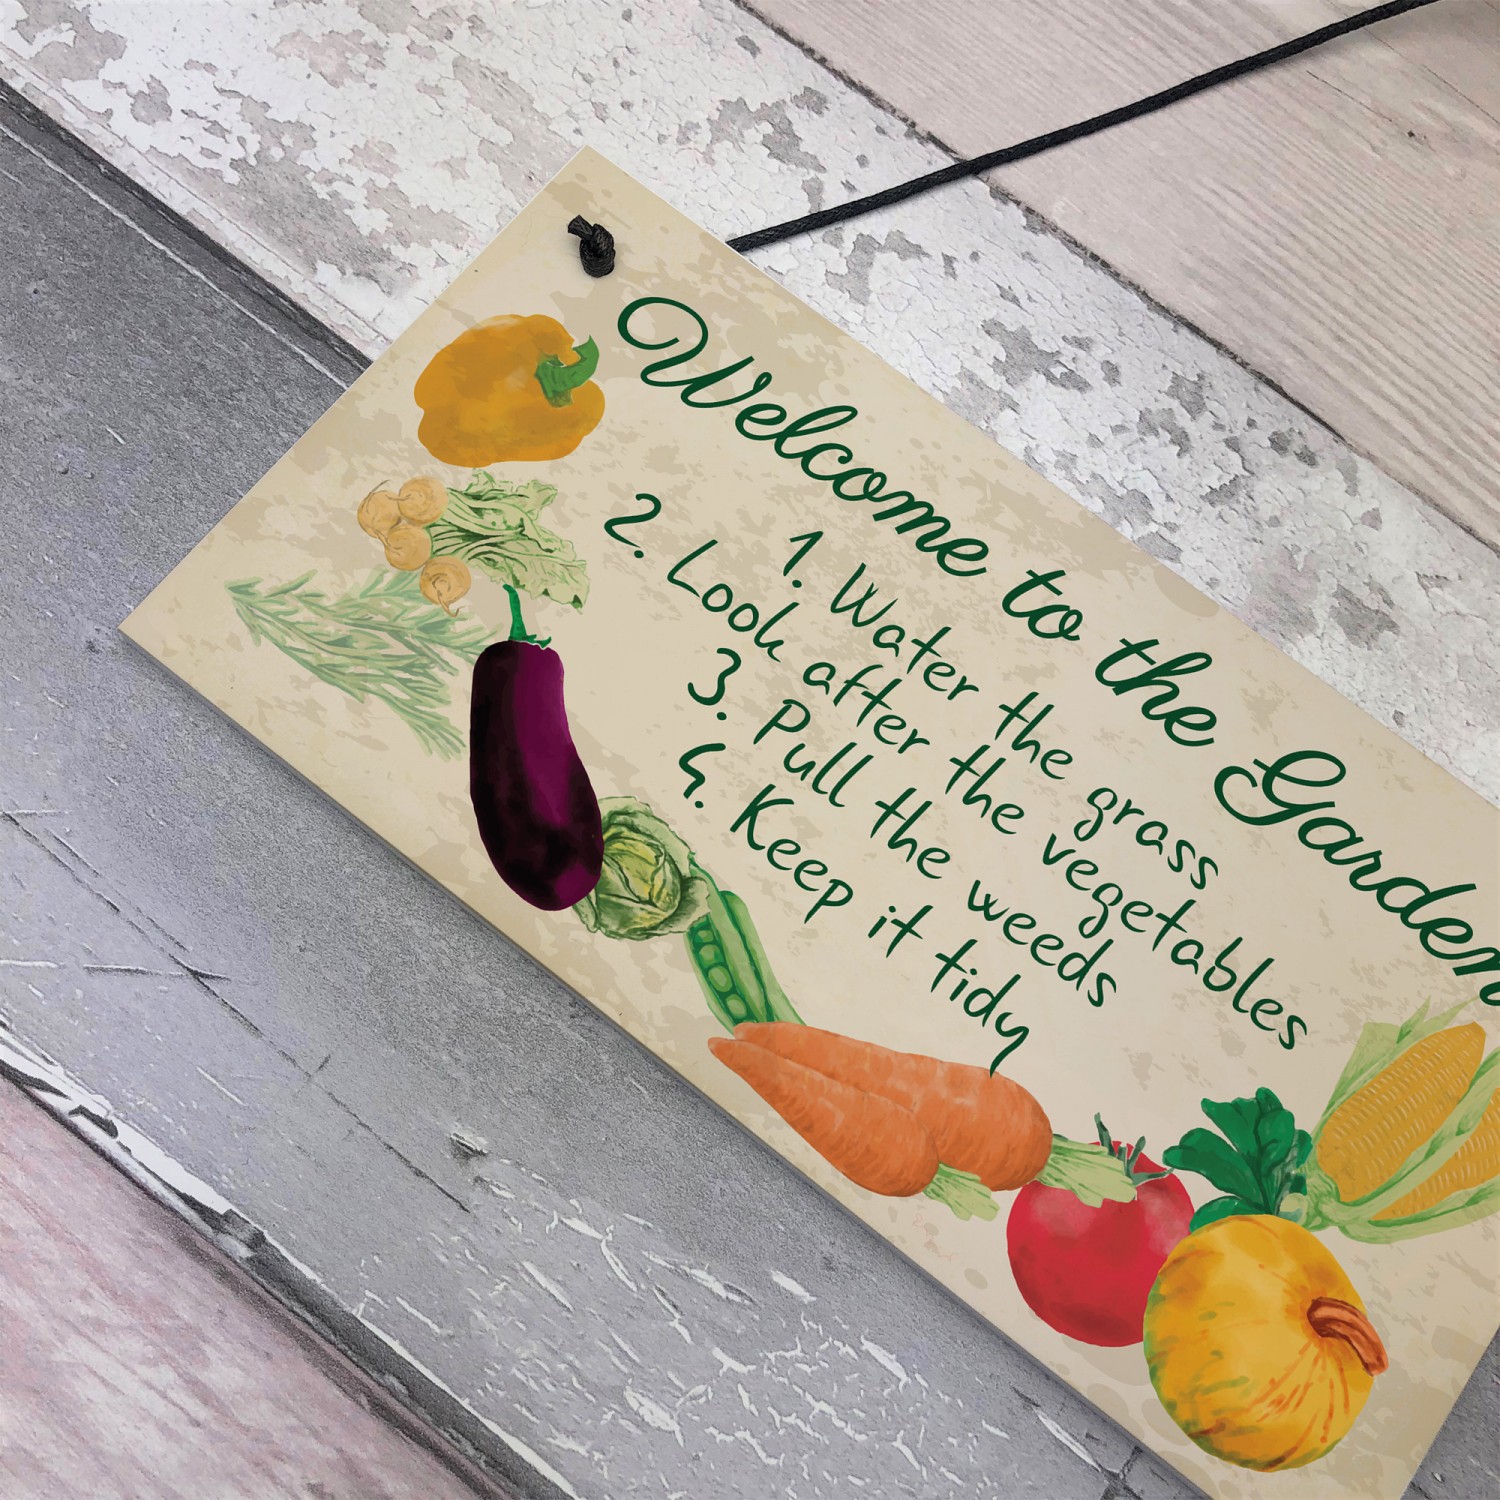 Welcome to the Garden
1. Water the grass
2. Look after the vegetables
3. Pull the weeds
4. Keep it tidy